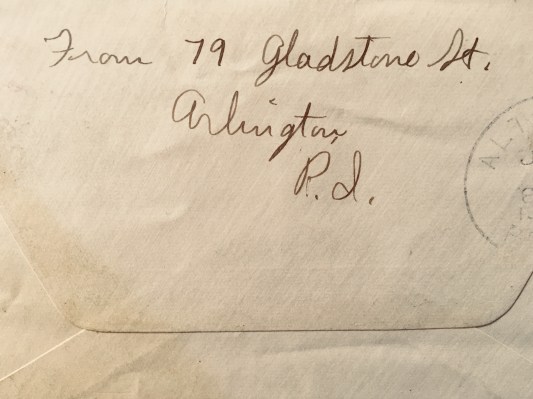 From 79 Gladstone St.
Arlington,
R.I.